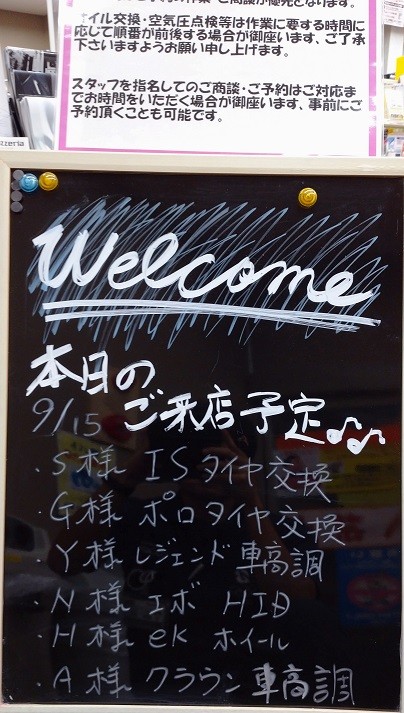 オイル交換・空気圧点検等は作業に要する時間に
応じて順番が前後する場合が御座います、ご了承
下さいますようお願い申し上げます。
スタッフを指名してのご商談・ご予約はご対応ま
でお時間をいただく場合が御座います、事前にご
予約頂くことも可能です。
Welcome
本日の
9/15 ご来店予定♪♪
・S様 IS タイヤ交換
・G様 ポロタイヤ交換
・Y様 レジェンド 車高調
・N様 エボ HID
・H様 ek ホイール
・A様 クラウン 車高調